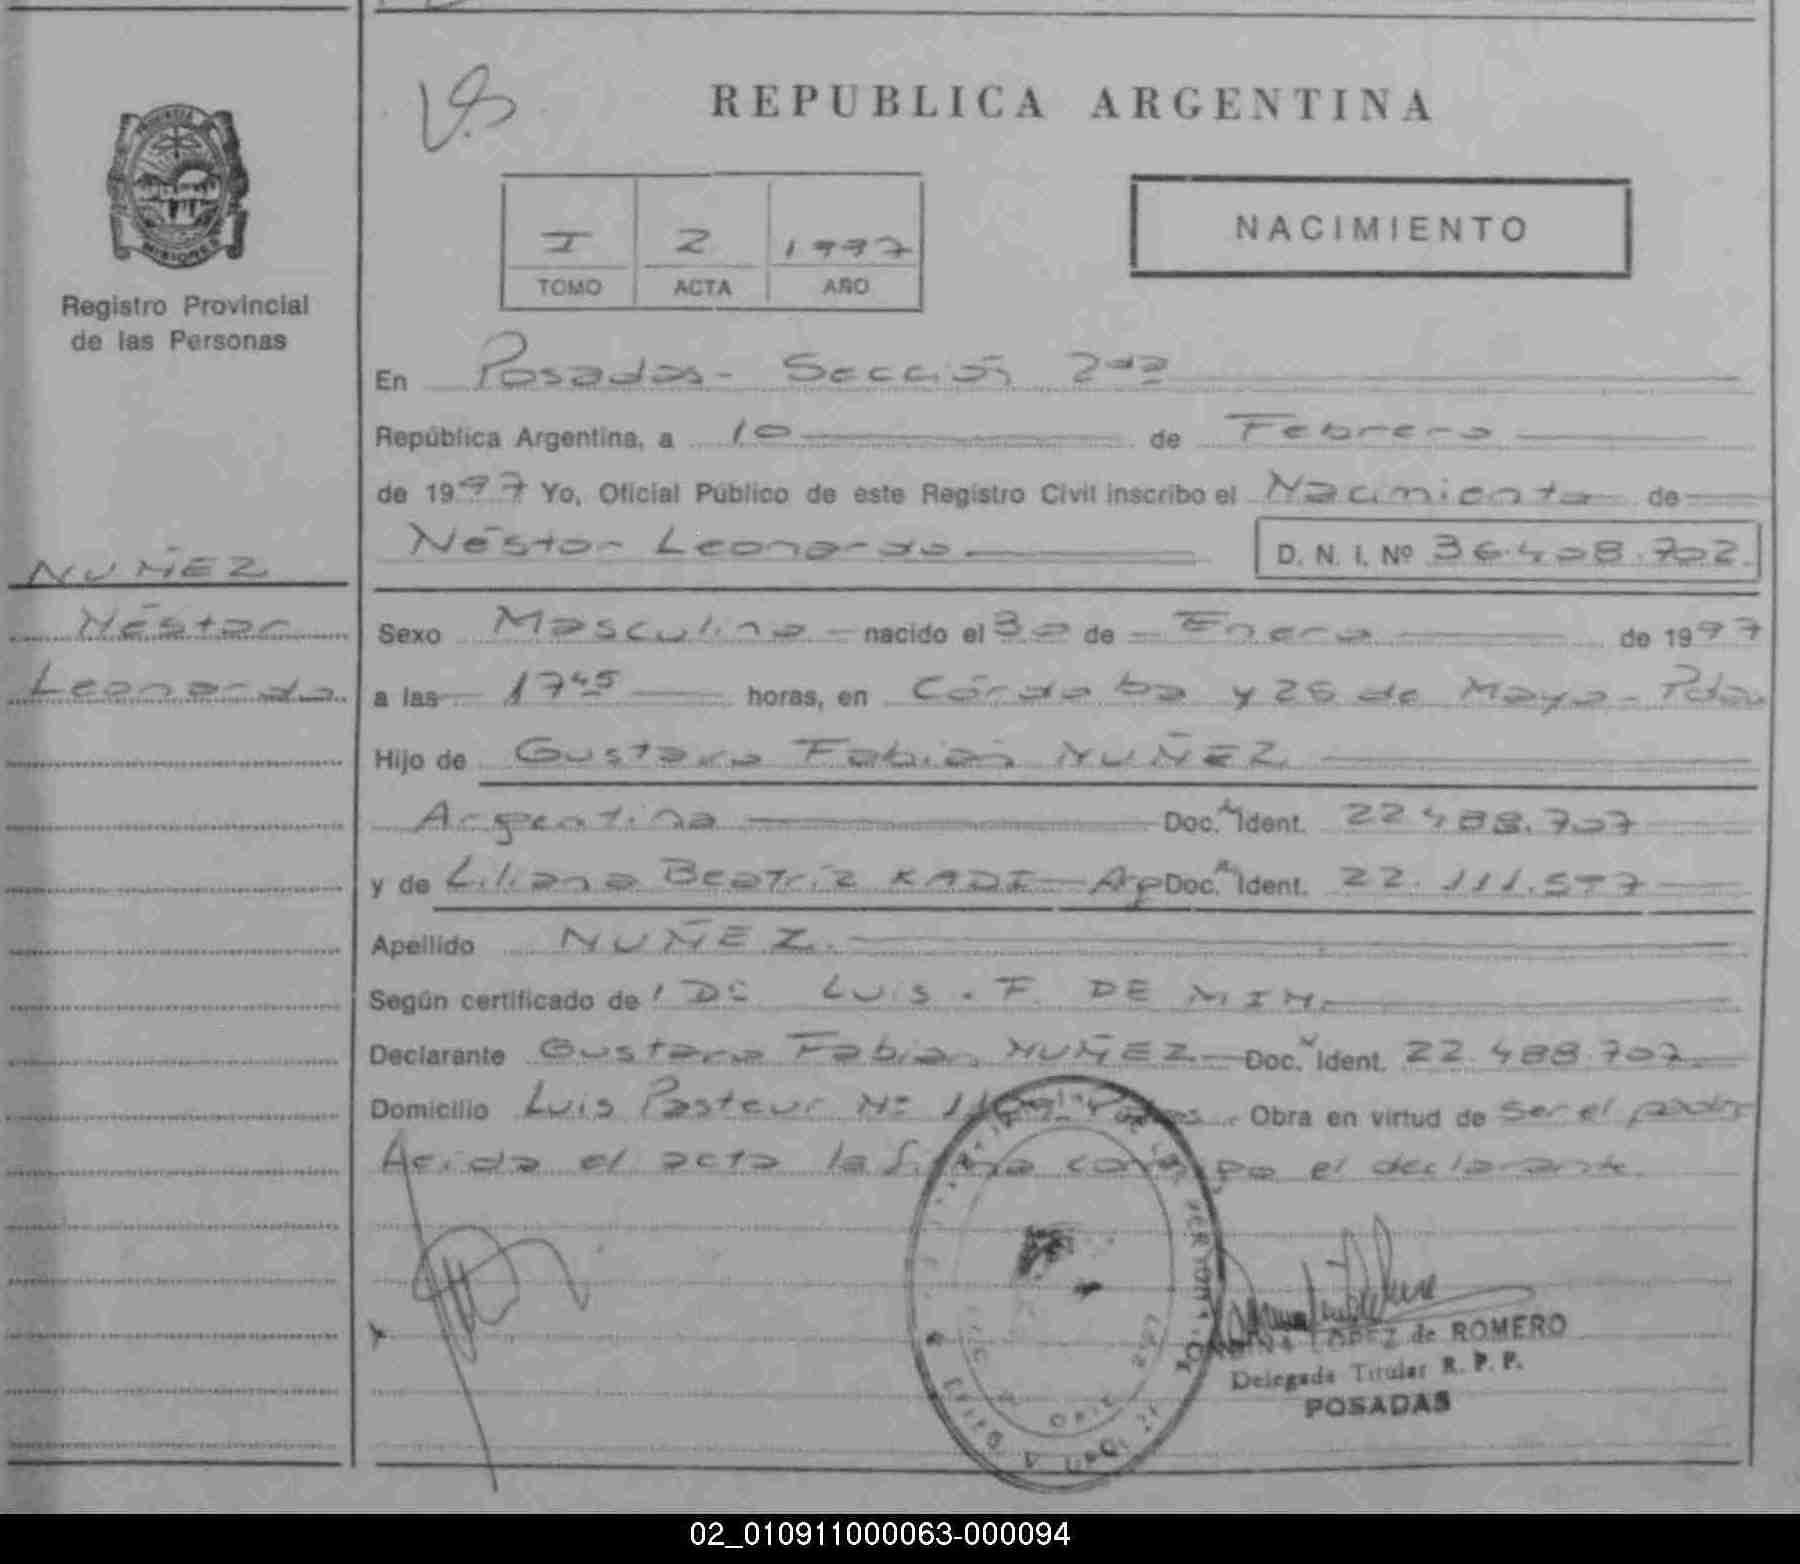 REPUBLICA ARGENTINA
PROVINCIA DE MISIONES
Registro Provincial
de las Personas
I 2 1997
TOMO ACTA AÑO
NACIMIENTO
En Posadas - Sección 2da
República Argentina, a 10 de Febrero
de 1997 Yo, Oficial Público de este Registro Civil inscribo el Nacimiento de
Néstor Leonardo D. N. I. Nº 36.408.702.
NUÑEZ
Néstor
Leonardo
Sexo Masculino nacido el 30 de Enero de 1997
a las 17 45 horas, en Córdoba y 25 de Mayo - Pdas
Hijo de Gustavo Fabián NUÑEZ
Argentina Doc. N Ident. 22 488.707
y de Liliana Beatriz KADI Arg Doc. N Ident. 22.111.577
Apellido NUÑEZ.
Según certificado de Luis. F. DE
Declarante Gustavo Fabian NUÑEZ Doc. N Ident. 22.488.707.
Domicilio Luis Pasteur Nº Obra en virtud de ser el padre
el acta la el declarante.
LOPEZ de ROMERO
Delegada Titular R. P. P.
POSADAS
02_010911000063-000094